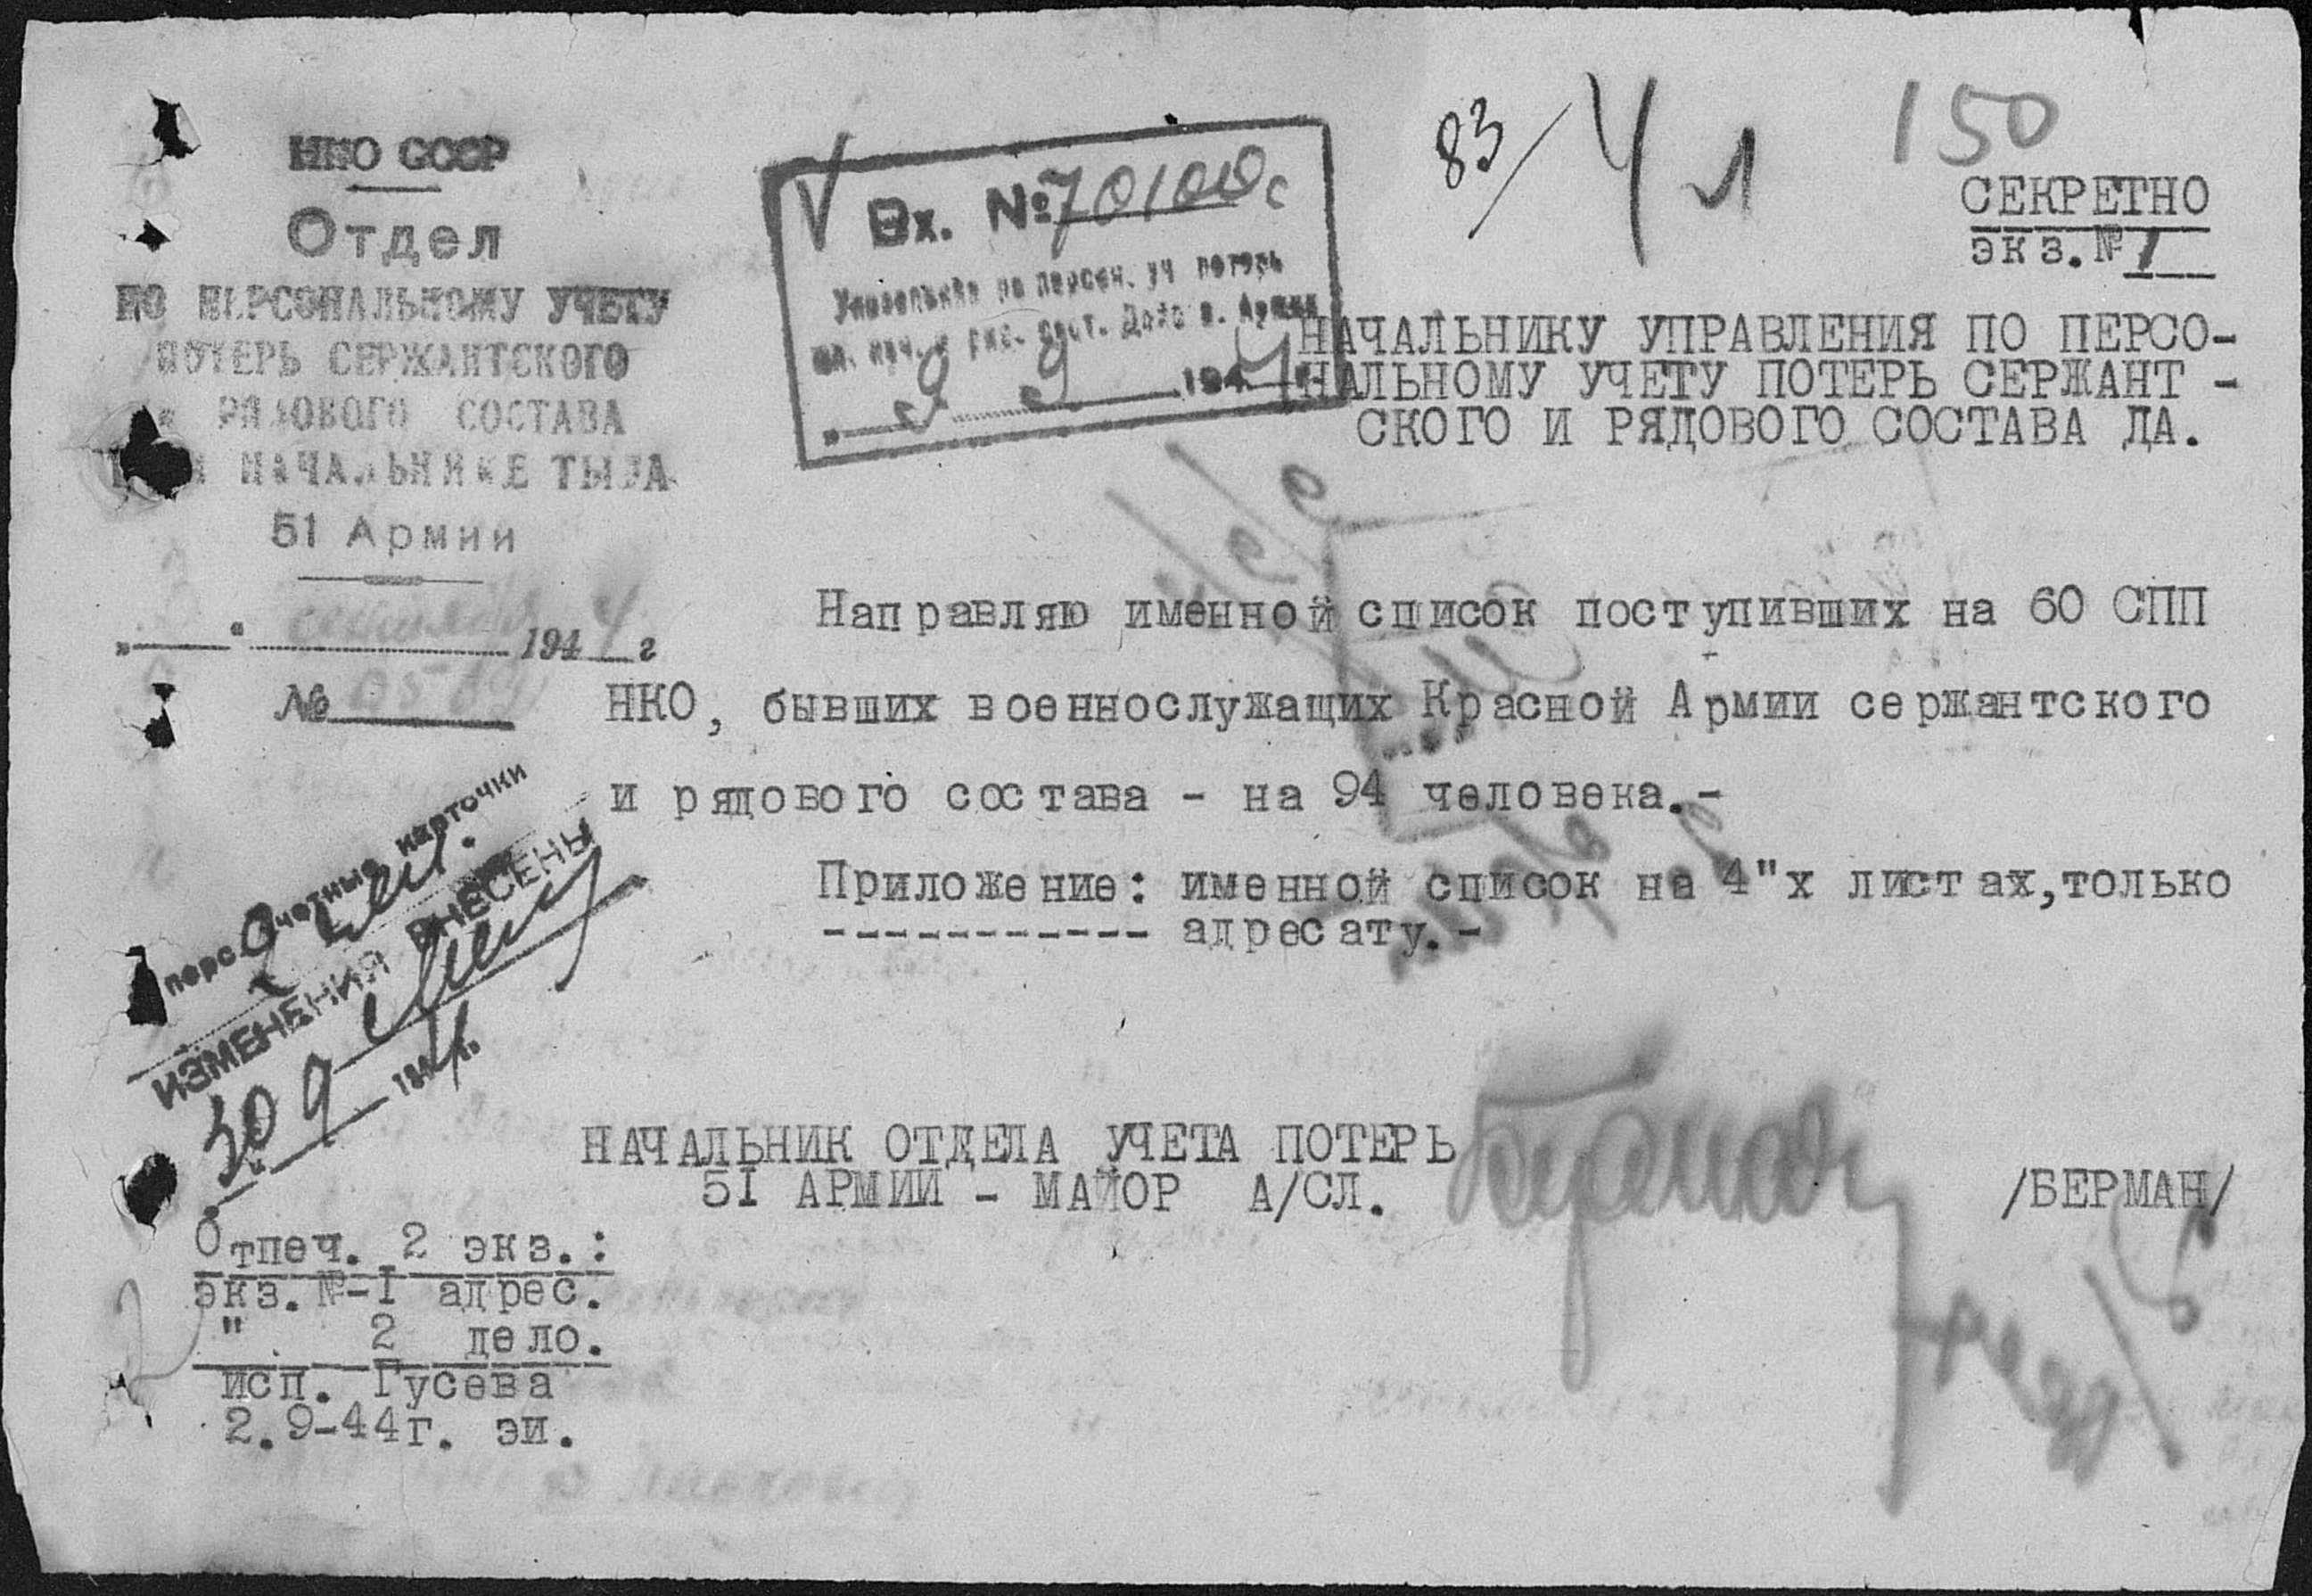 НКО СССР
Отдел
ПО ПЕРСОНАЛЬНОМУ УЧЕТУ
ПОТЕРЬ СЕРЖАНТСКОГО
и РЯДОВОГО СОСТАВА
НАЧАЛЬНИКЕ ТЫЛА
51 Армии
1944 г
№
Вх. № 70100с
9 9 1944
83/ 4 л
150
СЕКРЕТНО
экз.№ 1
НАЧАЛЬНИКУ УПРАВЛЕНИЯ ПО ПЕРСО-
НАЛЬНОМУ УЧЕТУ ПОТЕРЬ СЕРЖАНТ -
СКОГО И РЯДОВОГО СОСТАВА ДА.
Направляю именной список поступивших на 60 СПП
НКО, бывших военнослужащих Красной Армии сержантского
и рядового состава - на 94 человека.-
Приложение: именной список на 4"х листах,только
----------- адресату.-
перс. учетные карточки
ИЗМЕНЕНИЯ ВНЕСЕНЫ
30 9 1944 г.
НАЧАЛЬНИК ОТДЕЛА УЧЕТА ПОТЕРЬ
5I АРМИИ - МАЙОР А/СЛ.
/БЕРМАН/
Отпеч. 2 экз.:
экз.№-I адрес.
" 2 дело.
исп. Гусева
2.9-44г. эи.